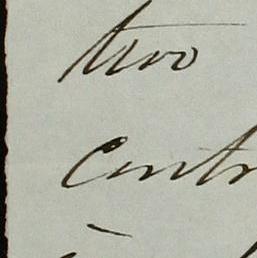 two
Contr